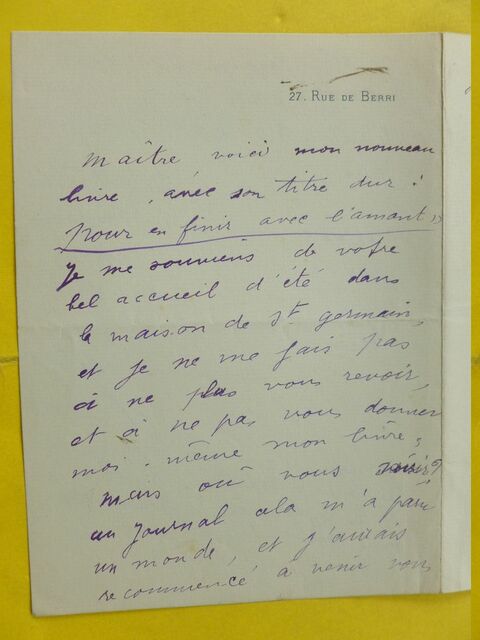 27. RUE DE BERRI
Maître, voici mon nouveau
livre, avec son titre dur !
pour en finir avec l'amant !)
Je me souviens de votre
bel accueil d'été dans
la maison de St germain,
et je ne me fais pas
à ne plus vous revoir,
et à ne pas vous donner
moi-même mon livre,
mais où vous
au journal cela m'a paru
un monde, et j'aurais
recommencé à venir vous